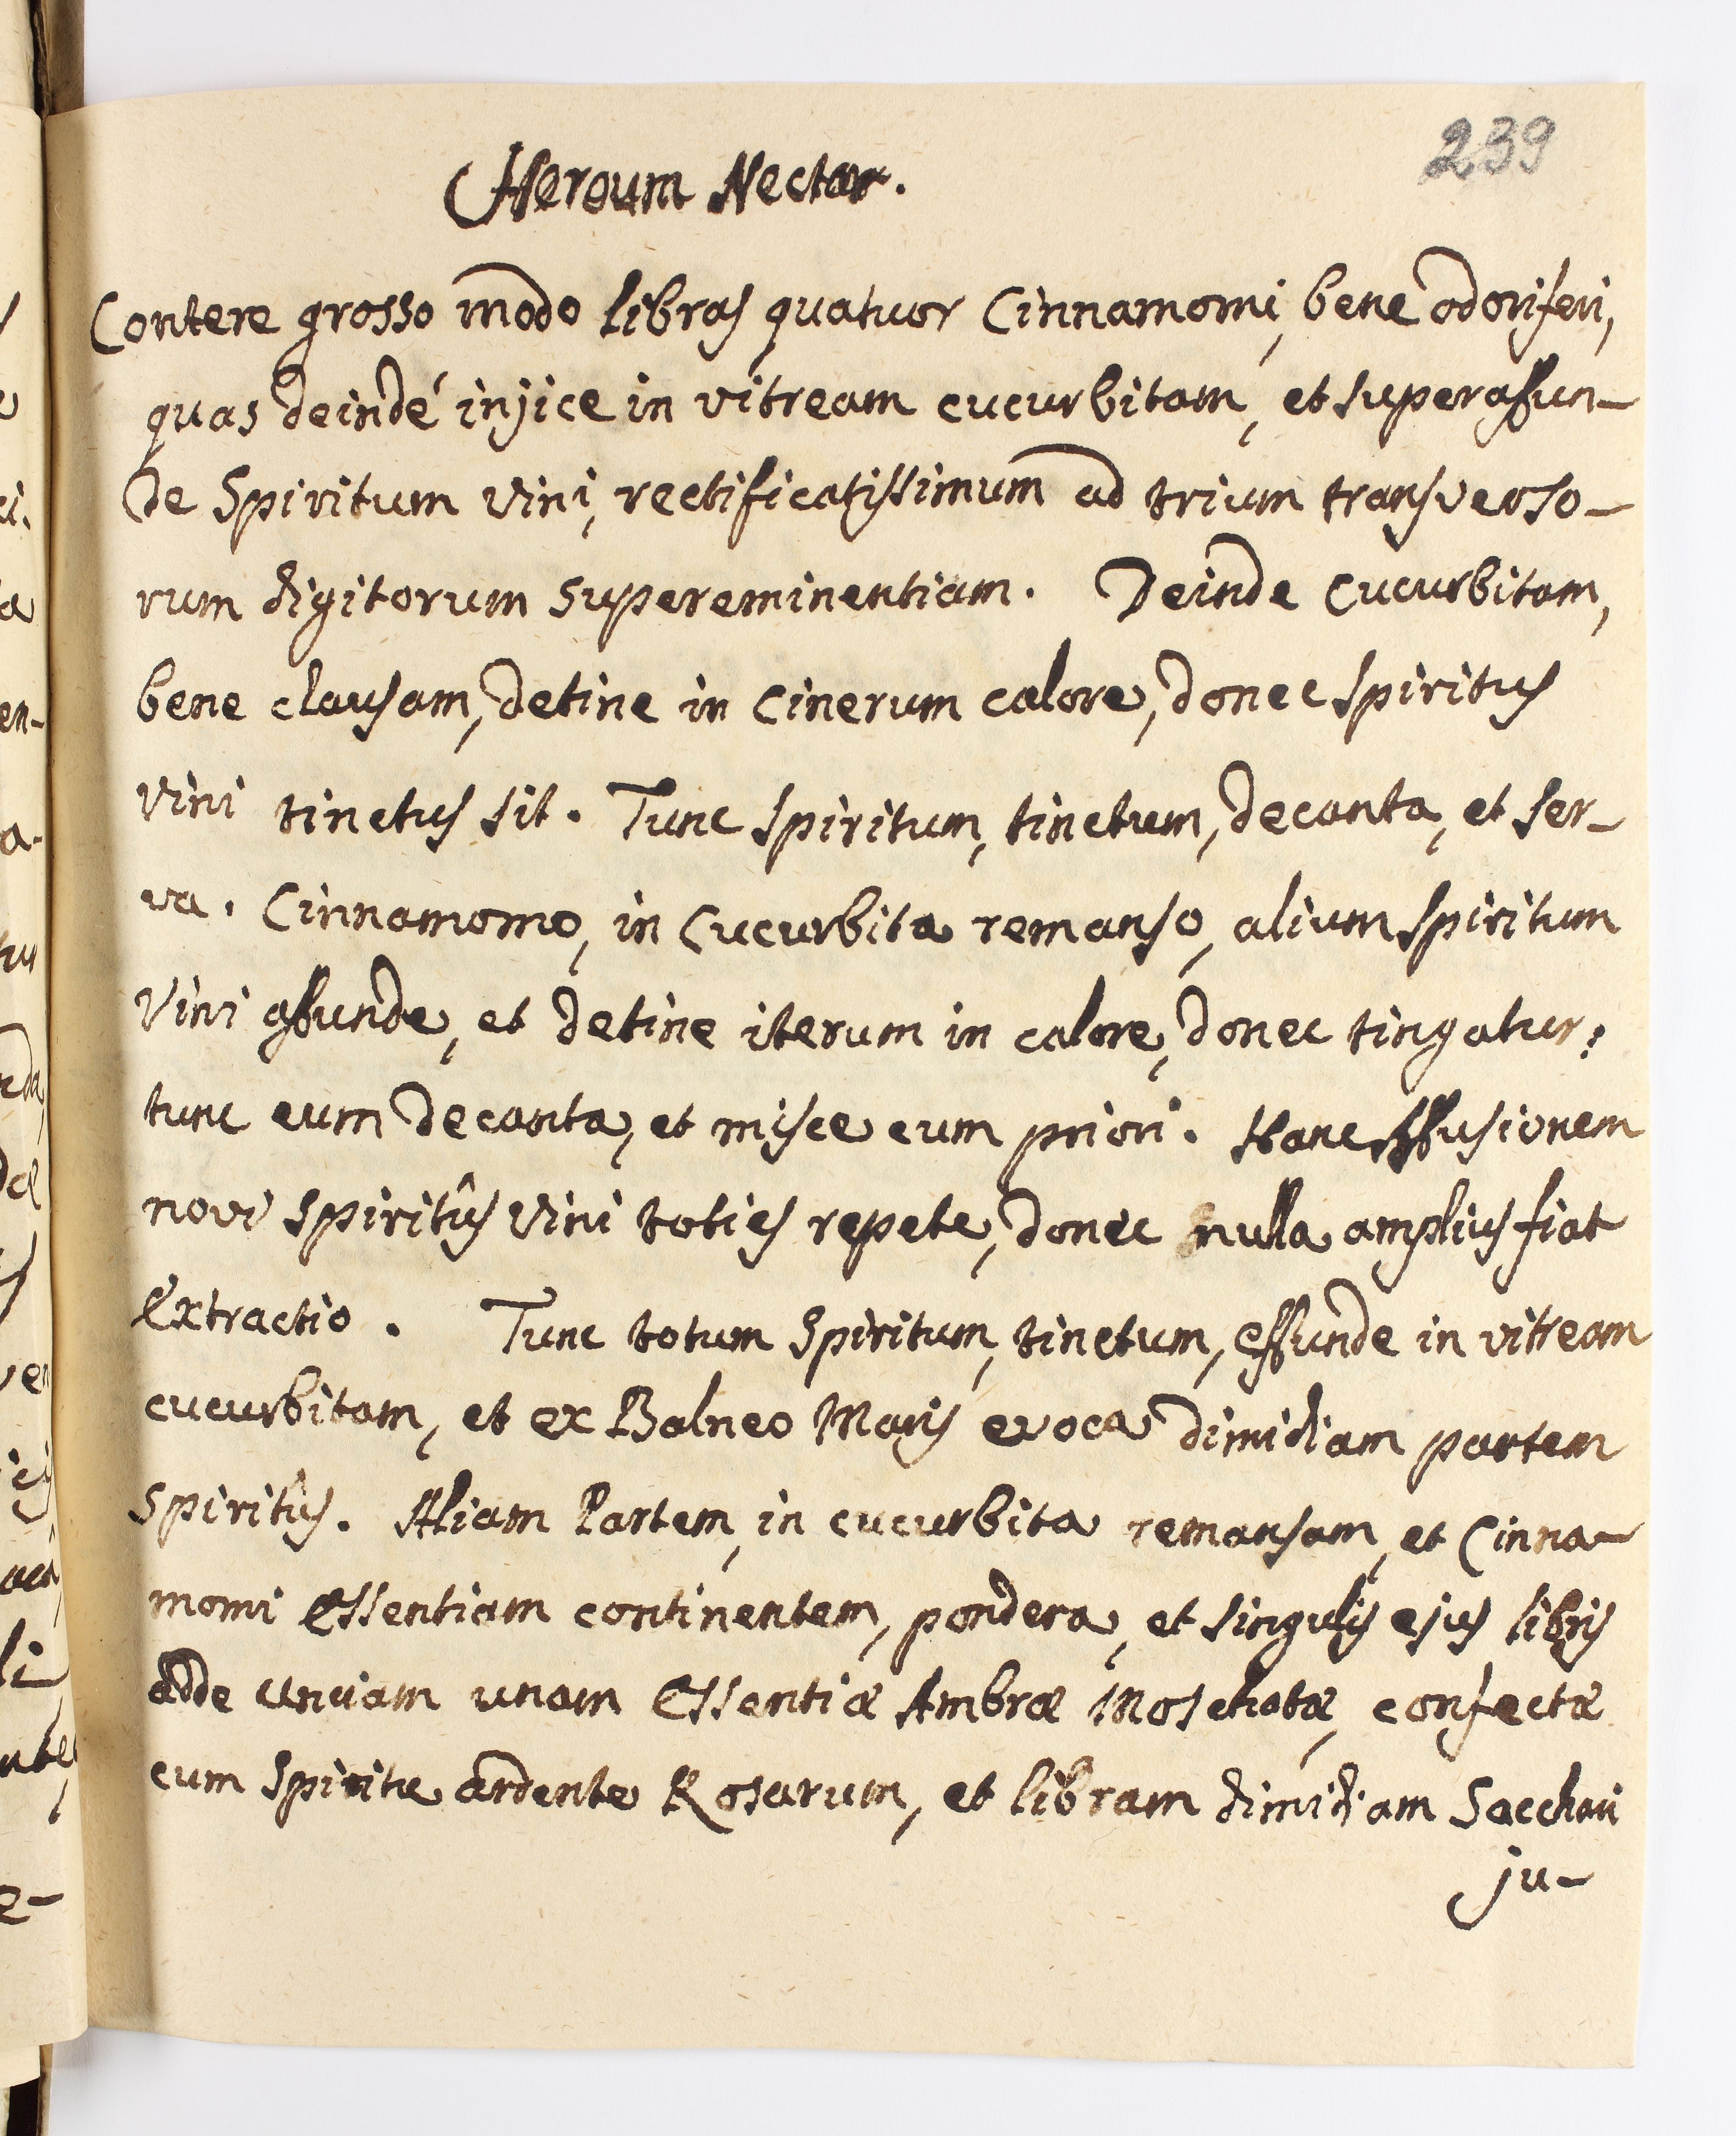 239
Heroum Nectar.
Contere grosso modo libras quatuor Cinnamomi, bene odoriferi,
quas deindé injice in vitream cucurbitam, et superaffun-
de Spiritum Vini, rectificatissimum ad trium transverso-
rum digitorum supereminentiam. Deinde Cucurbitam,
bene clausam, detine in Cinerum calore, donec Spiritus
Vini tinctus sit. Tunc Spiritum, tinctum, decanta, et ser-
va. Cinnamomo, in Cucurbita remanso, alium Spiritum
Vini affunde, et detine iterum in calore, donec tingatur:
tunc eum decanta, et misce cum priori. Hanc Affusionem
novi Spiritûs Vini toties repete, donec nulla amplius fiat
Extractio. Tunc totum Spiritum, tinctum, effunde in vitream
cucurbitam, et ex Balneo Maris evoca dimidiam partem
Spiritûs. Aliam Partem, in cucurbita remansam, et Cinna-
momi Essentiam continentem, pondera, et singulis ejus libris
adde Unciam unam Essentiæ Ambræ Moschatæ, confectæ
cum Spiritu ardente Rosarum, et libram dimidiam Sacchari
ju-